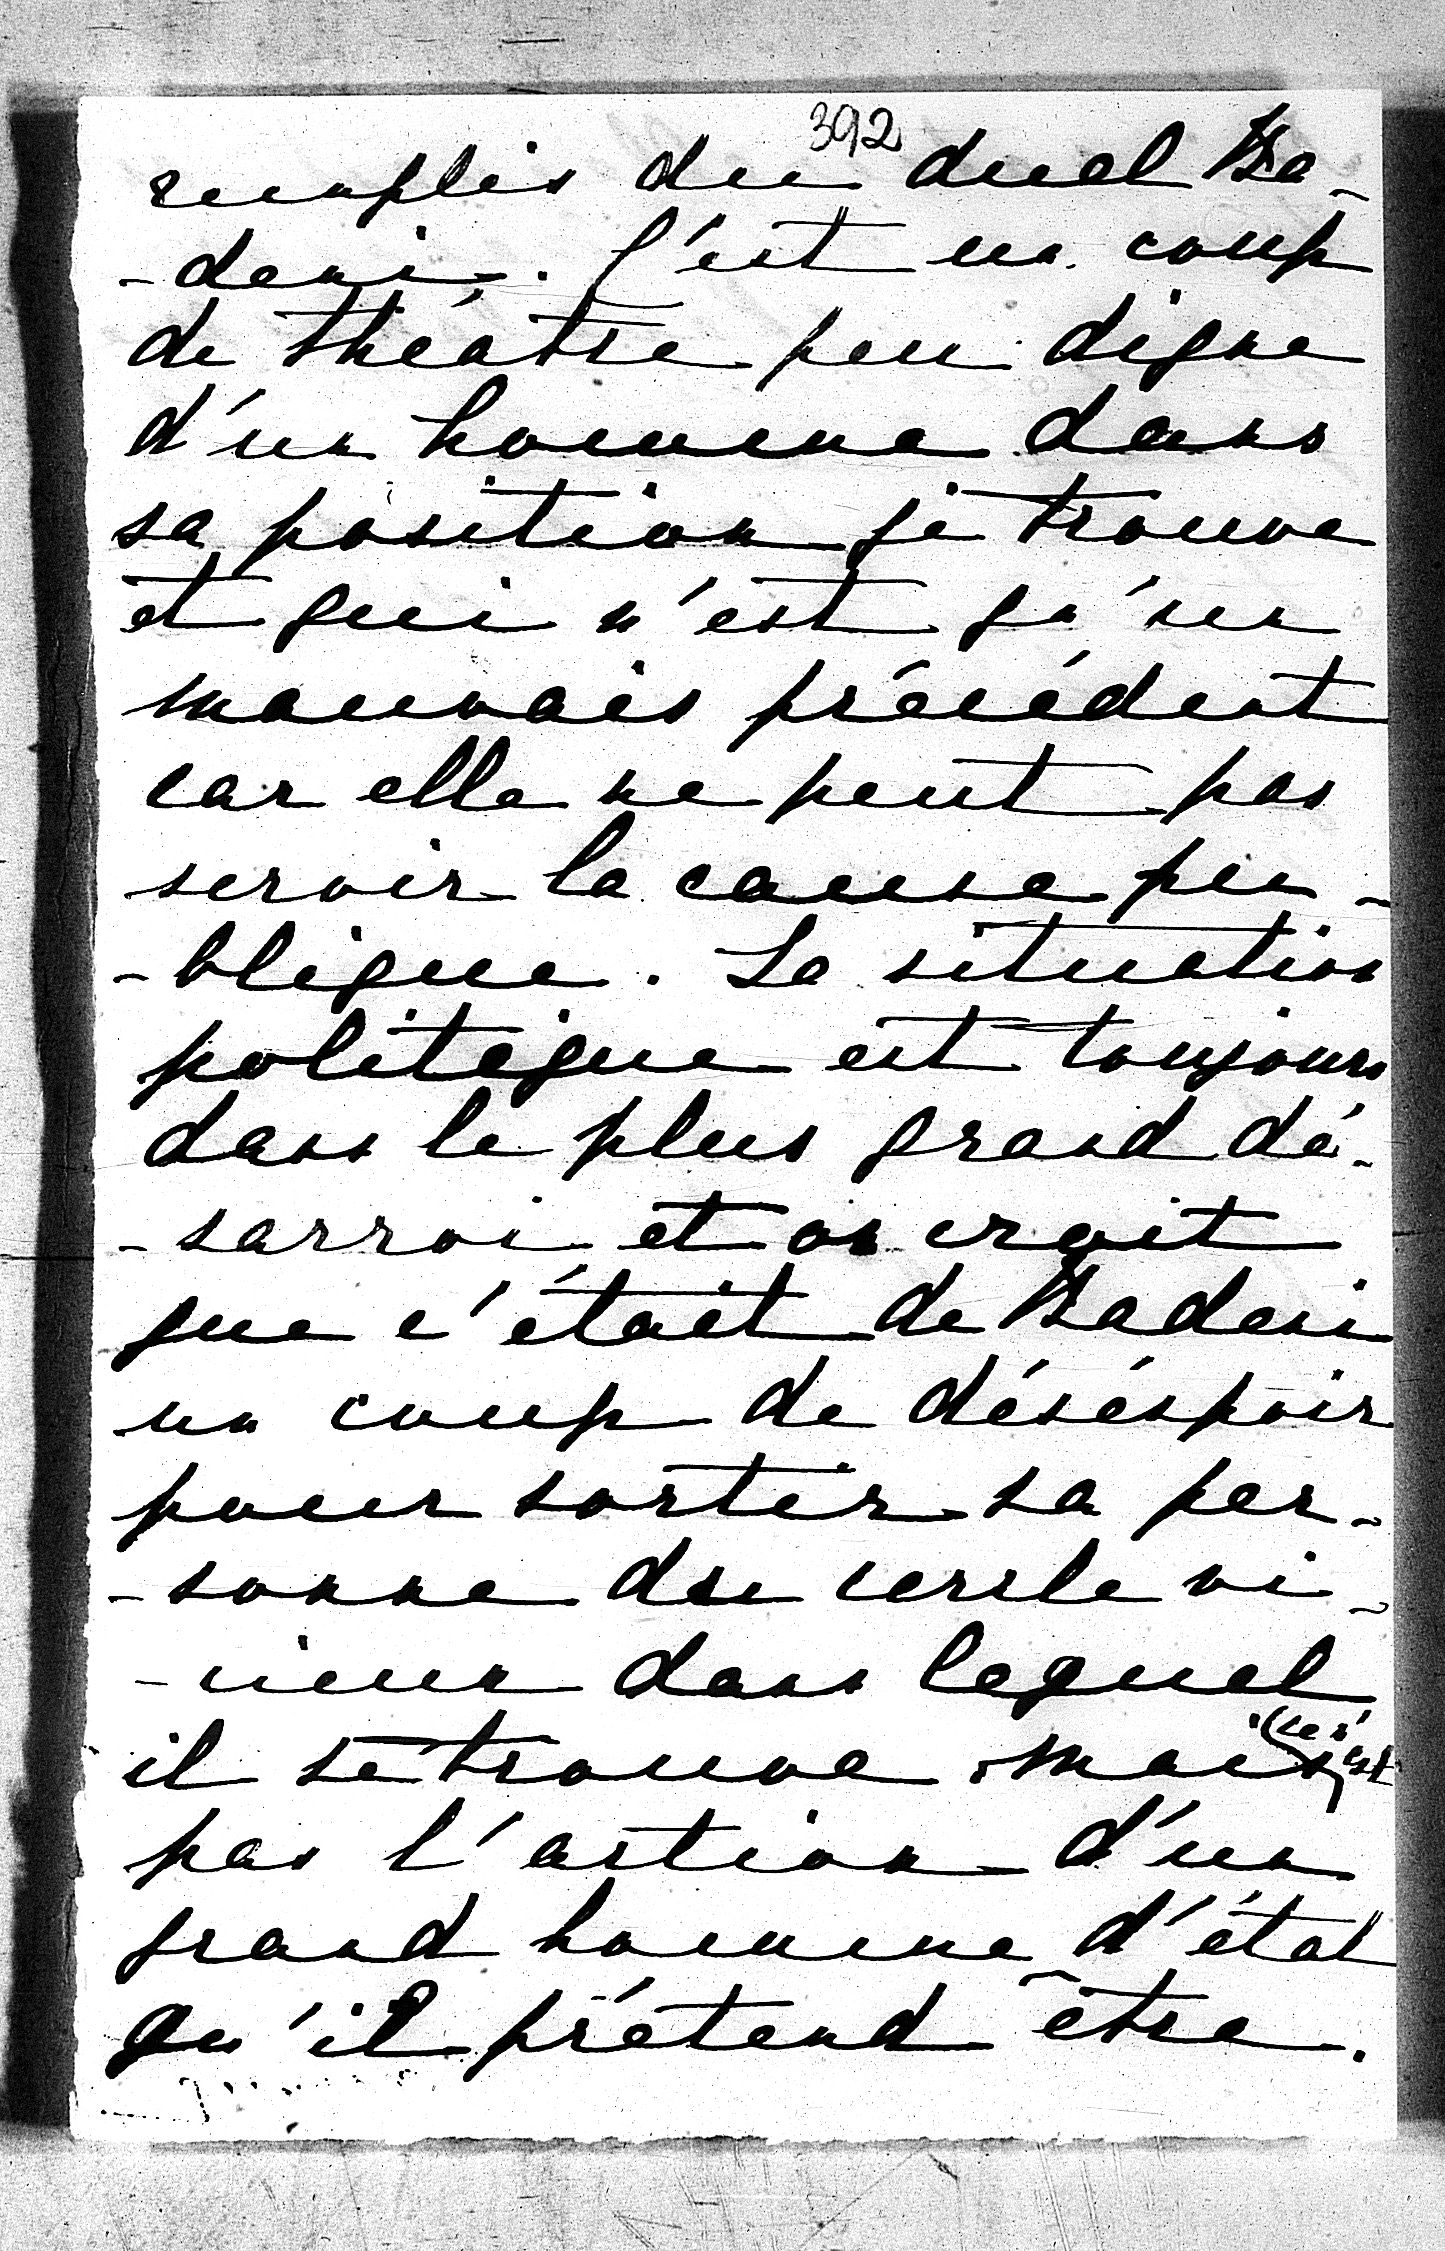 392
remplis du duel Ba-
-deni. C'est un coup
de théâtre peu digne
d'un homme dans
sa position je trouve
et qui n'est qu'un
mauvais précédent
car elle ne peut pas
servir la cause pu-
-blique. La situation
politique est toujours
dans le plus grand dé-
-sarroi et on croit
que c'était de Badeni
un coup de déséspoir
pour sortir sa per-
-sonne du cercle vi-
-cieux dans lequel
il se trouve. Mais ce n'est
pas l'action d'un
grand homme d'état
qu'il prétend être.